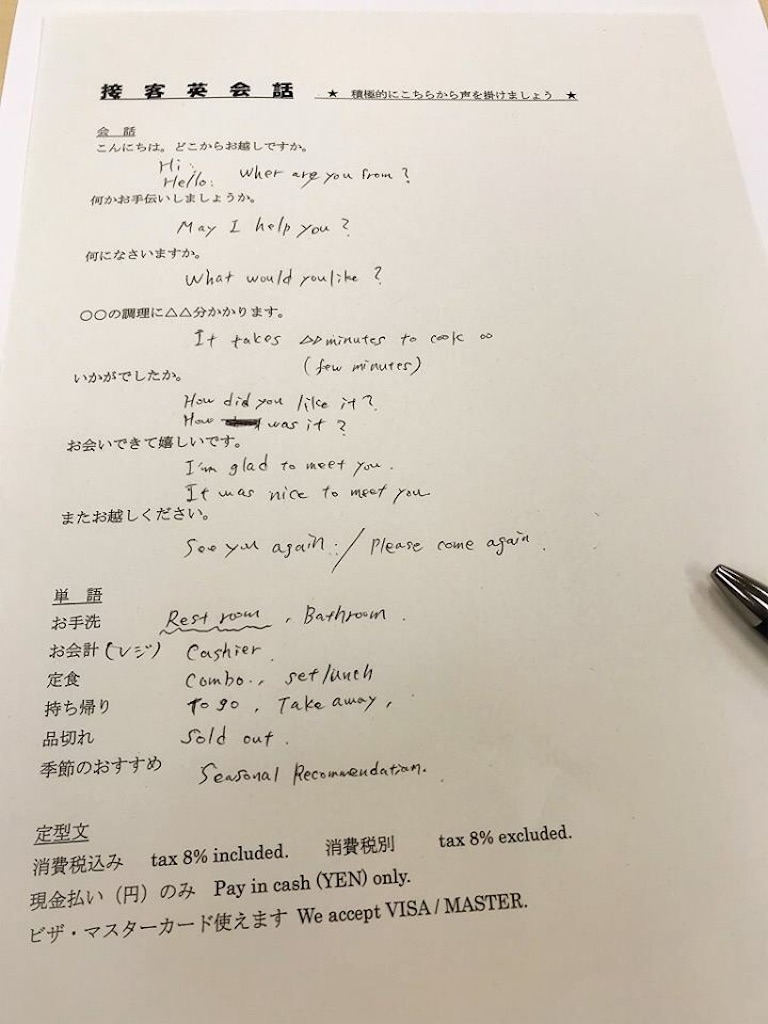 接客英会話 ★ 積極的にこちらから声を掛けましょう ★
会話
こんにちは。どこからお越しですか。
Hi.
Hello. Wher are you from?
何かお手伝いしましょうか。
May I help you?
何になさいますか。
What would you like?
○○の調理に△△分かかります。
It takes △△ minutes to cook ○○
(few minutes)
いかがでしたか。
How did you like it?
How was it?
お会いできて嬉しいです。
I'm glad to meet you.
It was nice to meet you
またお越しください。
See you again. / Please come again.
単語
お手洗 Rest room, Bathroom.
お会計(レジ) Cashier.
定食 Combo., set lunch
持ち帰り To go, Take away,
品切れ Sold out.
季節のおすすめ Seasonal Recommendation.
定型文
消費税込み tax 8% included. 消費税別 tax 8% excluded.
現金払い(円)のみ Pay in cash (YEN) only.
ビザ・マスターカード使えます We accept VISA / MASTER.